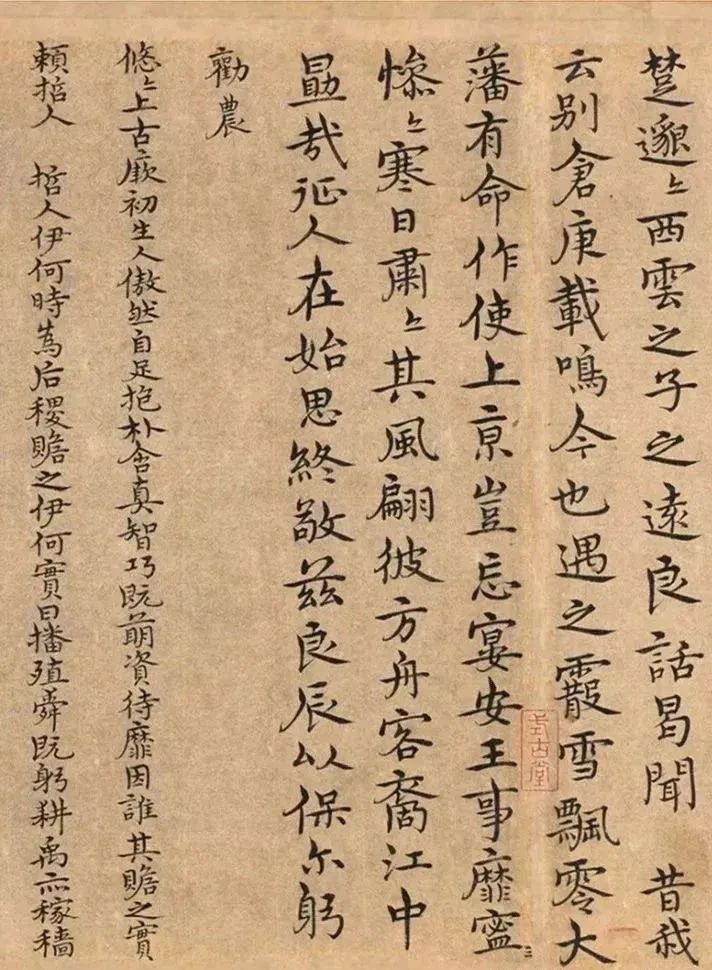 楚邈々西雲之子之遠良話曷聞　昔我
云别倉庚載鳴今也遇之霰雪飄零大
藩有命作使上亰豈忘宴安王事靡寧
慘々寒日肅々其風翩彼方舟容裔江中
勗哉征人在始思終敬兹良辰以保尔躬
勸農
悠々上古厥初生人傲然自足抱朴含真智巧既萌資待靡因誰其贍之實
賴哲人　哲人伊何時為后稷贍之伊何實曰播殖舜既躬耕禹亦稼穡
式古堂